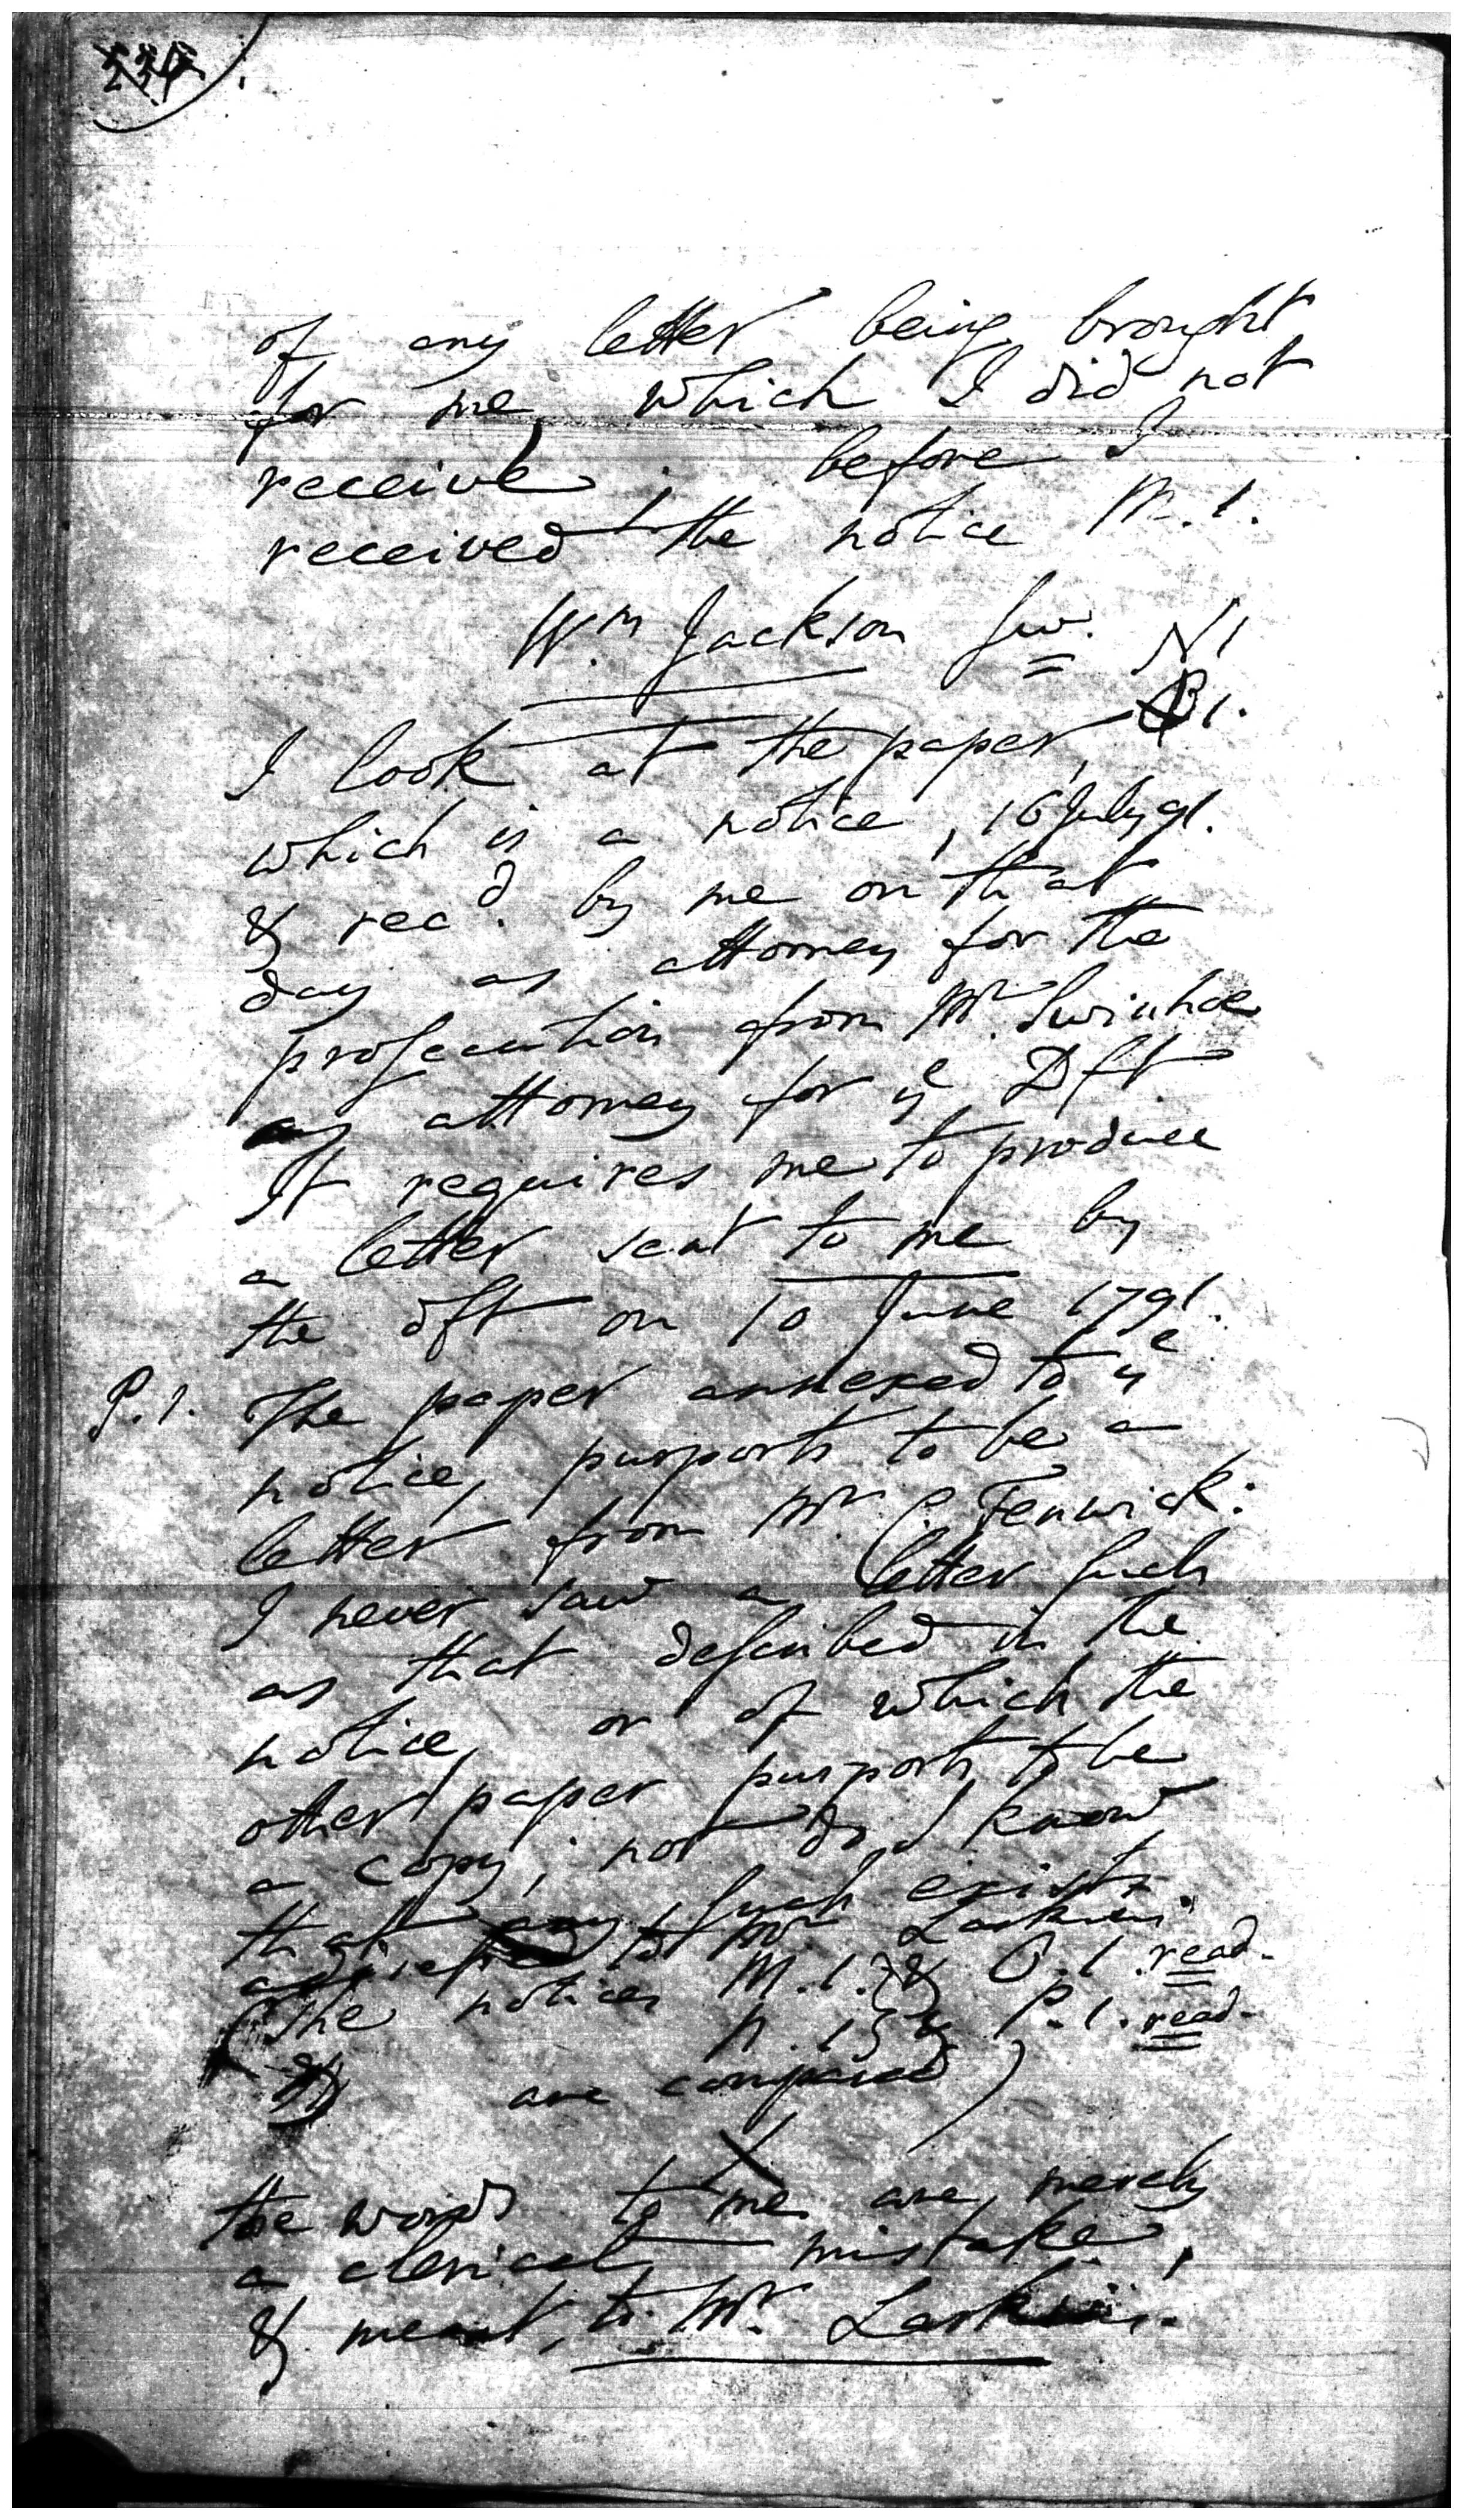 234
of any letter being brought
for me, which I did not
receive, before I
received the notice M.1.
Wm Jackson sw. N1
I look at the paper,
which is a notice, 16 July 91.
& recd. by me on that
day as attorney for the
prosecution from Mr. Swinhoe
as attorney for ye Dft
It requires me to produce
a letter sent to me by
the dft on 10 June 1791.
P.1. The paper annexed to ye
notice, purports to be a
letter from Mr C. Fenwick:
I never saw a letter such
as that described in the
notice, or of which the
other paper purports to be
a copy; nor do I know
that any such exists
to Mr Larkins.
(The notices M.1. & O.1. read-
N.1 & P.1. read-
are compared)
the words to me are merely
a clerical mistake,
& meant, to Mr. Larkins.